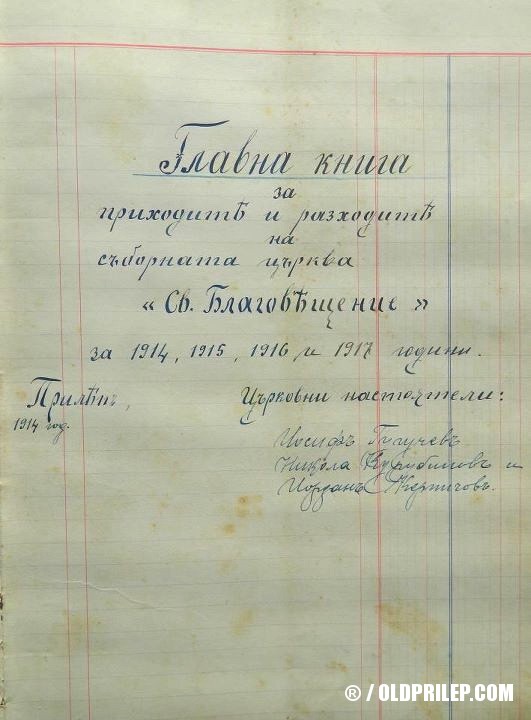 Главна книга
за
приходитѣ и разходитѣ
на
съборната църква
„Св. Благовѣщение”
за 1914, 1915, 1916 и 1917 години.
Прилѣпъ,
1914 год.
Църковни настоятели:
Иосифъ Гугучевъ
Никола и
Иорданъ
® / OLDPRILEP.COM